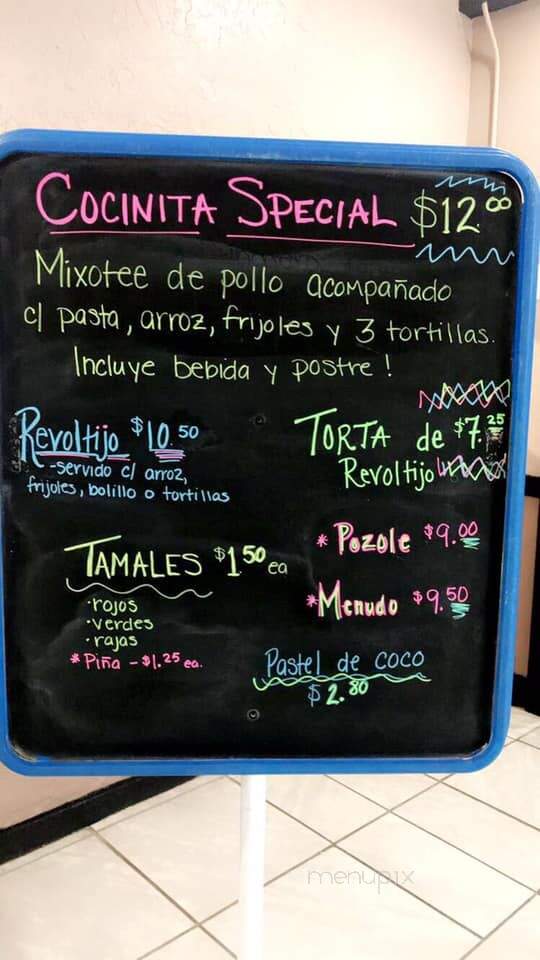 COCINITA SPECIAL $12.00
Mixotee de pollo acompañado
c/ pasta, arroz, frijoles y 3 tortillas.
Incluye bebida y postre!
Revoltijo $10.50
-servido c/ arroz,
frijoles, bolillo o tortillas
TORTA de $7.25
Revoltijo
TAMALES $1.50 ea
·rojos
·verdes
·rajas
* Piña - $1.25 ea.
* Pozole $9.00
*Menudo $9.50
Pastel de coco
$2.80
menupix